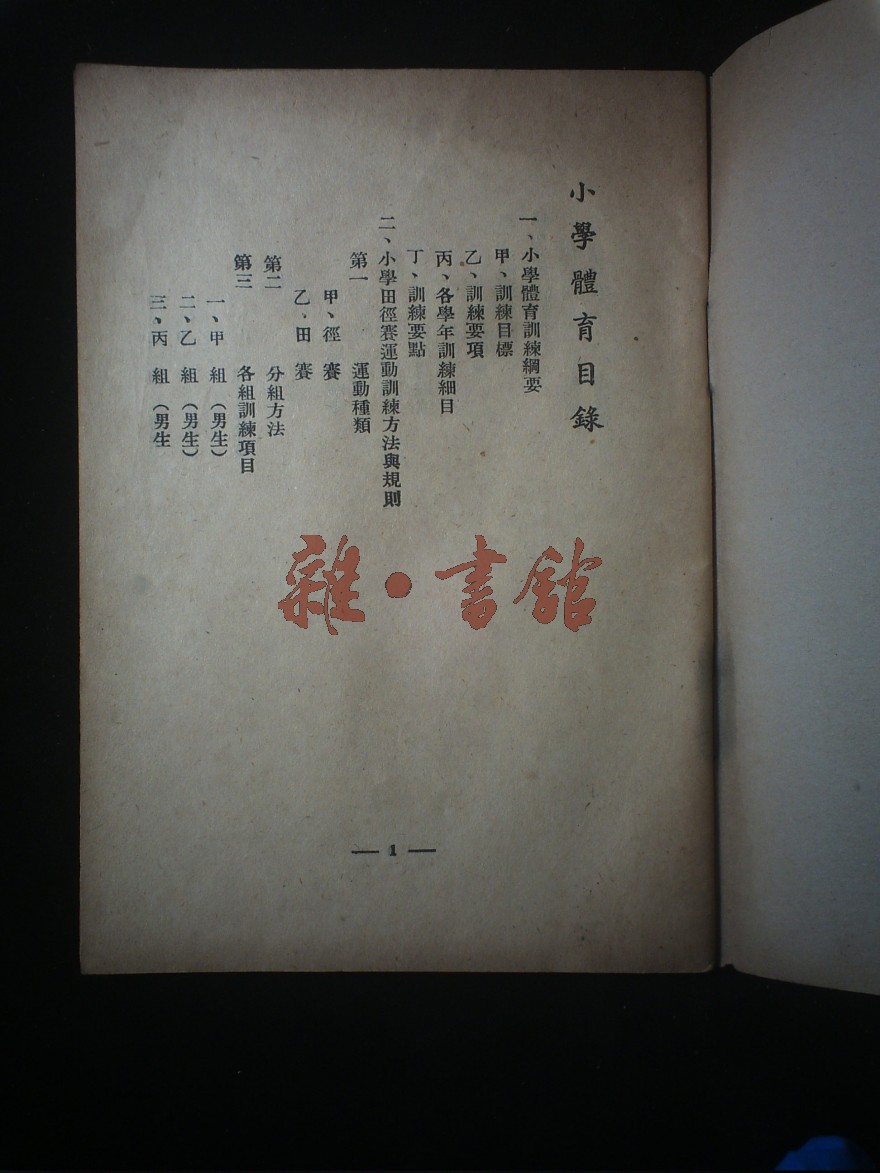 小學體育目錄
一、小學體育訓練綱要
甲、訓練目標
乙、訓練要項
丙、各學年訓練細目
丁、訓練要點
二、小學田徑賽運動訓練方法與規則
第一　運動種類
甲、徑　賽
乙、田　賽
第二　分組方法
第三　各組訓練項目
一、甲　組　（男生）
二、乙　組　（男生）
三、丙　組　（男生
雜·書館
— 1 —